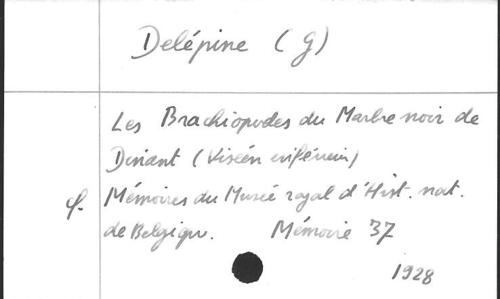 Delépine (G)
Les Brachiopodes du Marbre noir de
Dinant (Viséen inférieur)
φ. Mémoires du Musée royal d'Hist. nat.
de Belgique. Mémoire 37
1928